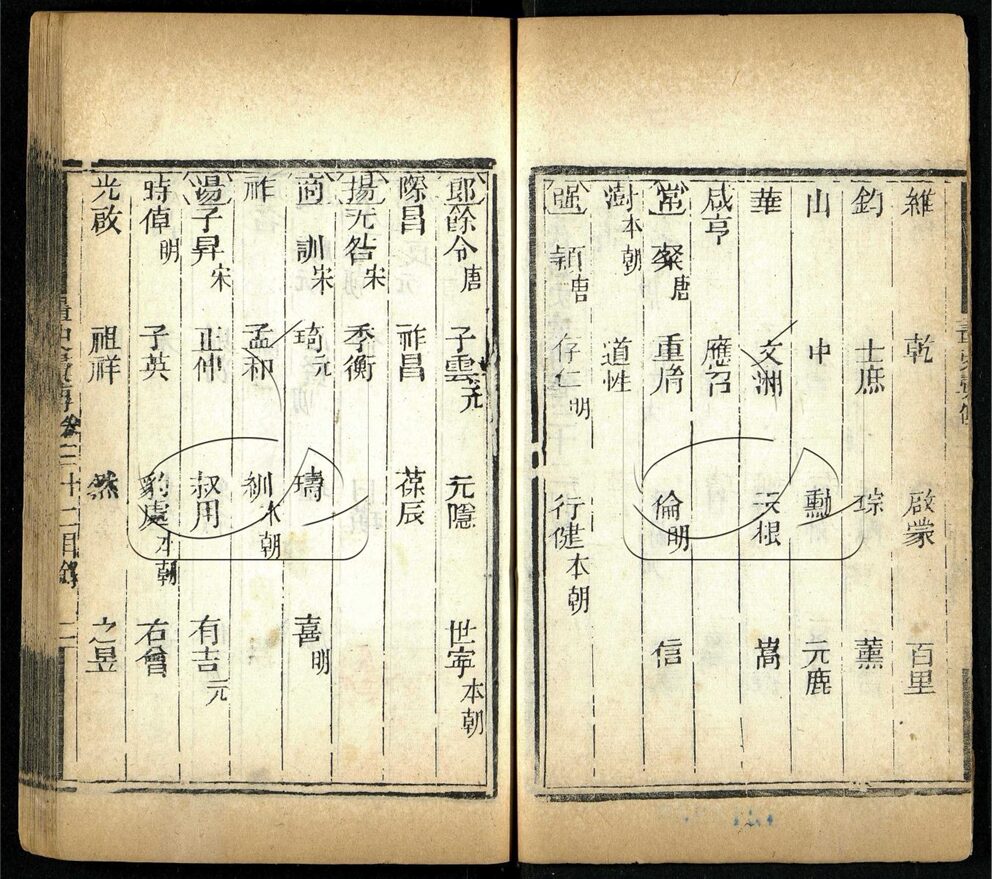 維 乾 啟蒙 百里
鈞 士庶 琮 薰
山 中 勳 元鹿
華 文洲 天根 嵩
咸亨 應召
常粲唐 重胤 倫明 信
澍本朝 道性
強 穎唐 存仁明 行健本朝
郎餘令唐 子雲元 元隱 世寧本朝
際昌 祚昌 葆辰
揚元咎宋 季衡
商 訓宋 琦元 璹 喜明
祚 孟和 紃本朝
湯子昇宋 正仲 叔用 有吉元
時偉明 子英 豹處本朝 右曾
光啟 祖祥 然 之昱
畫史彙傳 卷三十二目錄 二